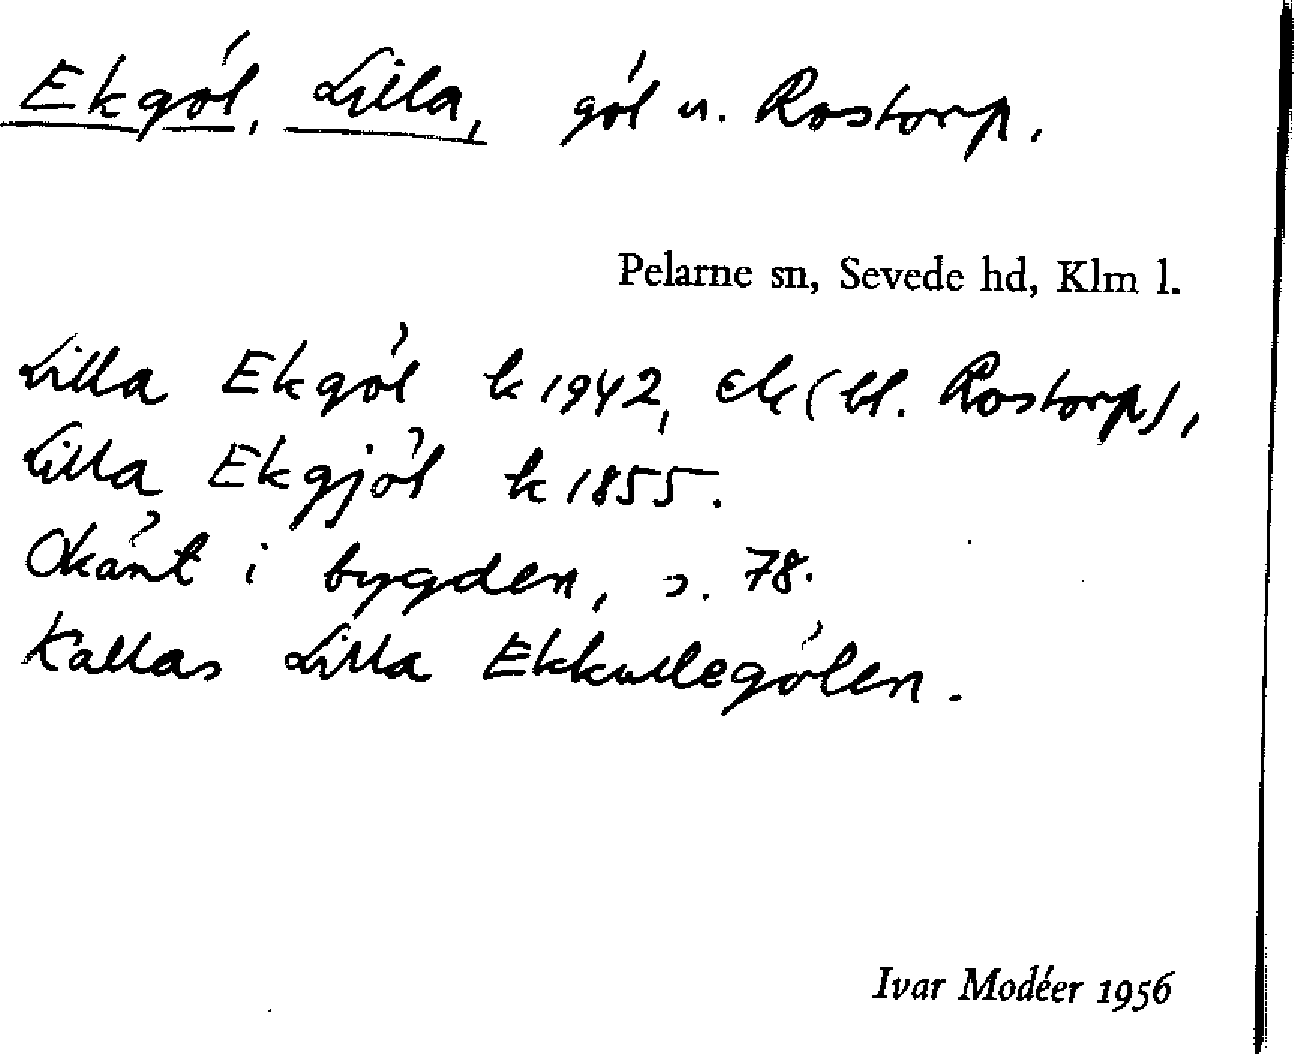 Ekgöl, Lilla, göl u. Rostorp.
Pelarne sn, Sevede hd, Klm l.
Lilla Ekgöl k 1942, ek (bl. Rostorp),
Lilla Ekgjöl k 1855.
Okänt i bygden, s. 78.
Kallas Lilla Ekkullegölen.
Ivar Modéer 1956